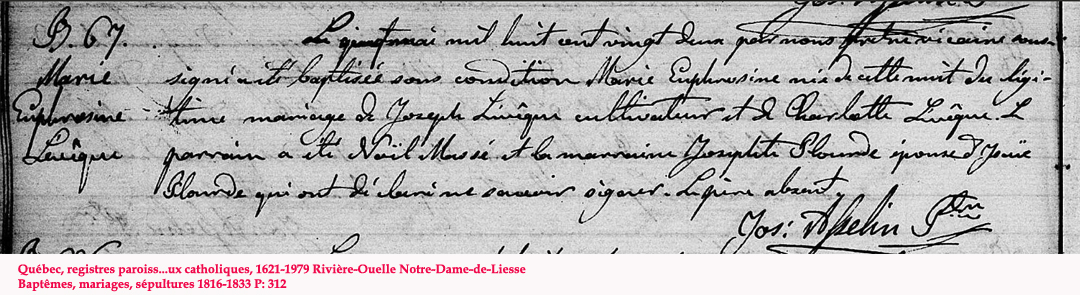 B. 67.
Marie
Euphrosine
Lévêque
Le quatre mai mil huit cent vingt deux par nous prêtre vicaire sous-
signé a été baptisée sous condition Marie Euphrosine née de cette nuit du légi-
time mariage de Joseph Lévêque cultivateur et de Charlotte Levêque. L
parrain a été Noël Massé et la marraine Josephte Plourde épouse d
Plourde qui ont déclaré ne savoir signer. Le père absent.
Jos: Asselin Ptre
Québec, registres paroiss...ux catholiques, 1621-1979 Rivière-Ouelle Notre-Dame-de-Liesse
Baptêmes, mariages, sépultures 1816-1833 P: 312